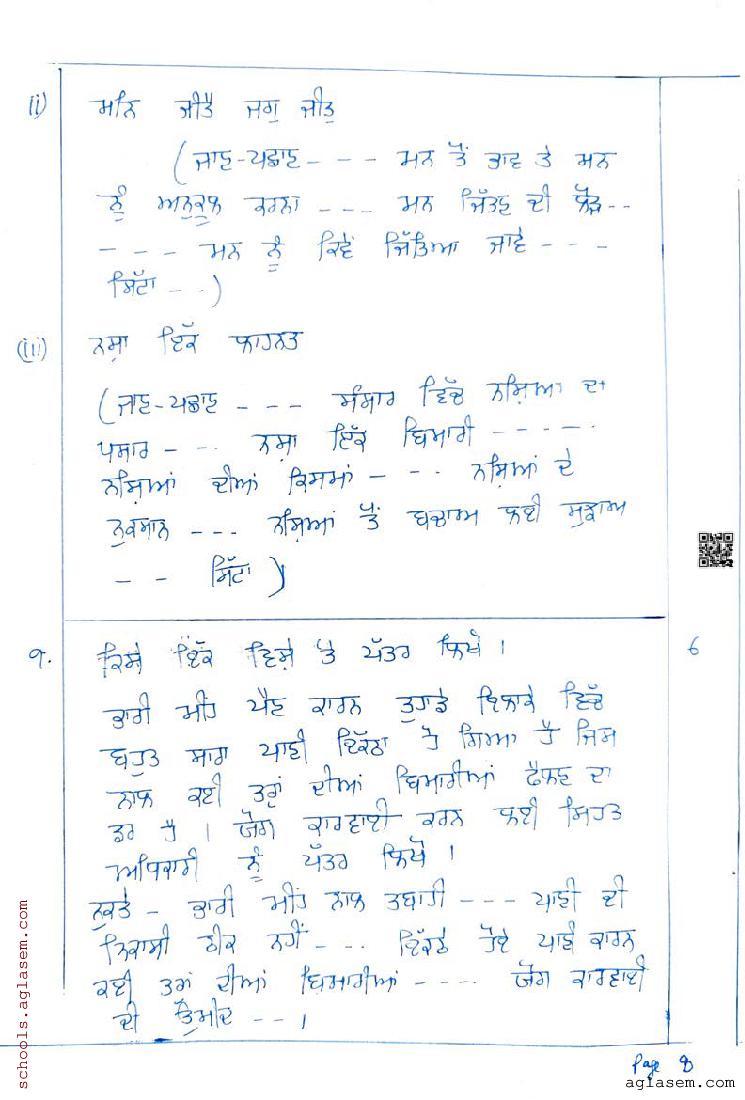 (ii) ਮਨਿ ਜੀਤੈ ਜਗੁ ਜੀਤੁ
(ਜਾਣ-ਪਛਾਣ - - - ਮਨ ਤੋਂ ਭਾਵ ਤੇ ਮਨ
ਨੂੰ ਅਨੁਕੂਲ ਕਰਨਾ - - - ਮਨ ਜਿੱਤਣ ਦੀ ਲੋੜ - -
- - - ਮਨ ਨੂੰ ਕਿਵੇਂ ਜਿੱਤਿਆ ਜਾਵੇ - - -
ਸਿੱਟਾ - - )
(iii) ਨਸ਼ਾ ਇੱਕ ਲਾਹਨਤ
(ਜਾਣ-ਪਛਾਣ - - - ਸੰਸਾਰ ਵਿੱਚ ਨਸ਼ਿਆ ਦਾ
ਪਸਾਰ - - - ਨਸ਼ਾ ਇੱਕ ਬਿਮਾਰੀ - - - - -
ਨਸ਼ਿਆਂ ਦੀਆਂ ਕਿਸਮਾਂ - - - ਨਸ਼ਿਆਂ ਦੇ
ਨੁਕਸਾਨ - - - ਨਸ਼ਿਆਂ ਤੋਂ ਬਚਾਅ ਲਈ ਸੁਝਾਅ
- - ਸਿੱਟਾ )
9. ਕਿਸੇ ਇੱਕ ਵਿਸ਼ੇ 'ਤੇ ਪੱਤਰ ਲਿਖੋ । 6
ਭਾਰੀ ਮੀਂਹ ਪੈਣ ਕਾਰਨ ਤੁਹਾਡੇ ਇਲਾਕੇ ਵਿੱਚ
ਬਹੁਤ ਸਾਰਾ ਪਾਣੀ ਇਕੱਠਾ ਹੋ ਗਿਆ ਹੈ ਜਿਸ
ਨਾਲ ਕਈ ਤਰ੍ਹਾਂ ਦੀਆਂ ਬਿਮਾਰੀਆਂ ਫੈਲਣ ਦਾ
ਡਰ ਹੈ । ਯੋਗ ਕਾਰਵਾਈ ਕਰਨ ਲਈ ਸਿਹਤ
ਅਧਿਕਾਰੀ ਨੂੰ ਪੱਤਰ ਲਿਖੋ ।
ਨੁਕਤੇ - ਭਾਰੀ ਮੀਂਹ ਨਾਲ ਤਬਾਹੀ - - - ਪਾਣੀ ਦੀ
ਨਿਕਾਸੀ ਠੀਕ ਨਹੀਂ - - - ਇਕੱਠੇ ਹੋਏ ਪਾਣੀ ਕਾਰਨ
ਕਈ ਤਰਾਂ ਦੀਆਂ ਬਿਮਾਰੀਆਂ - - - - ਯੋਗ ਕਾਰਵਾਈ
ਦੀ ਉਮੀਦ - - - ।
Page 8
schools.aglasem.com
aglasem.com